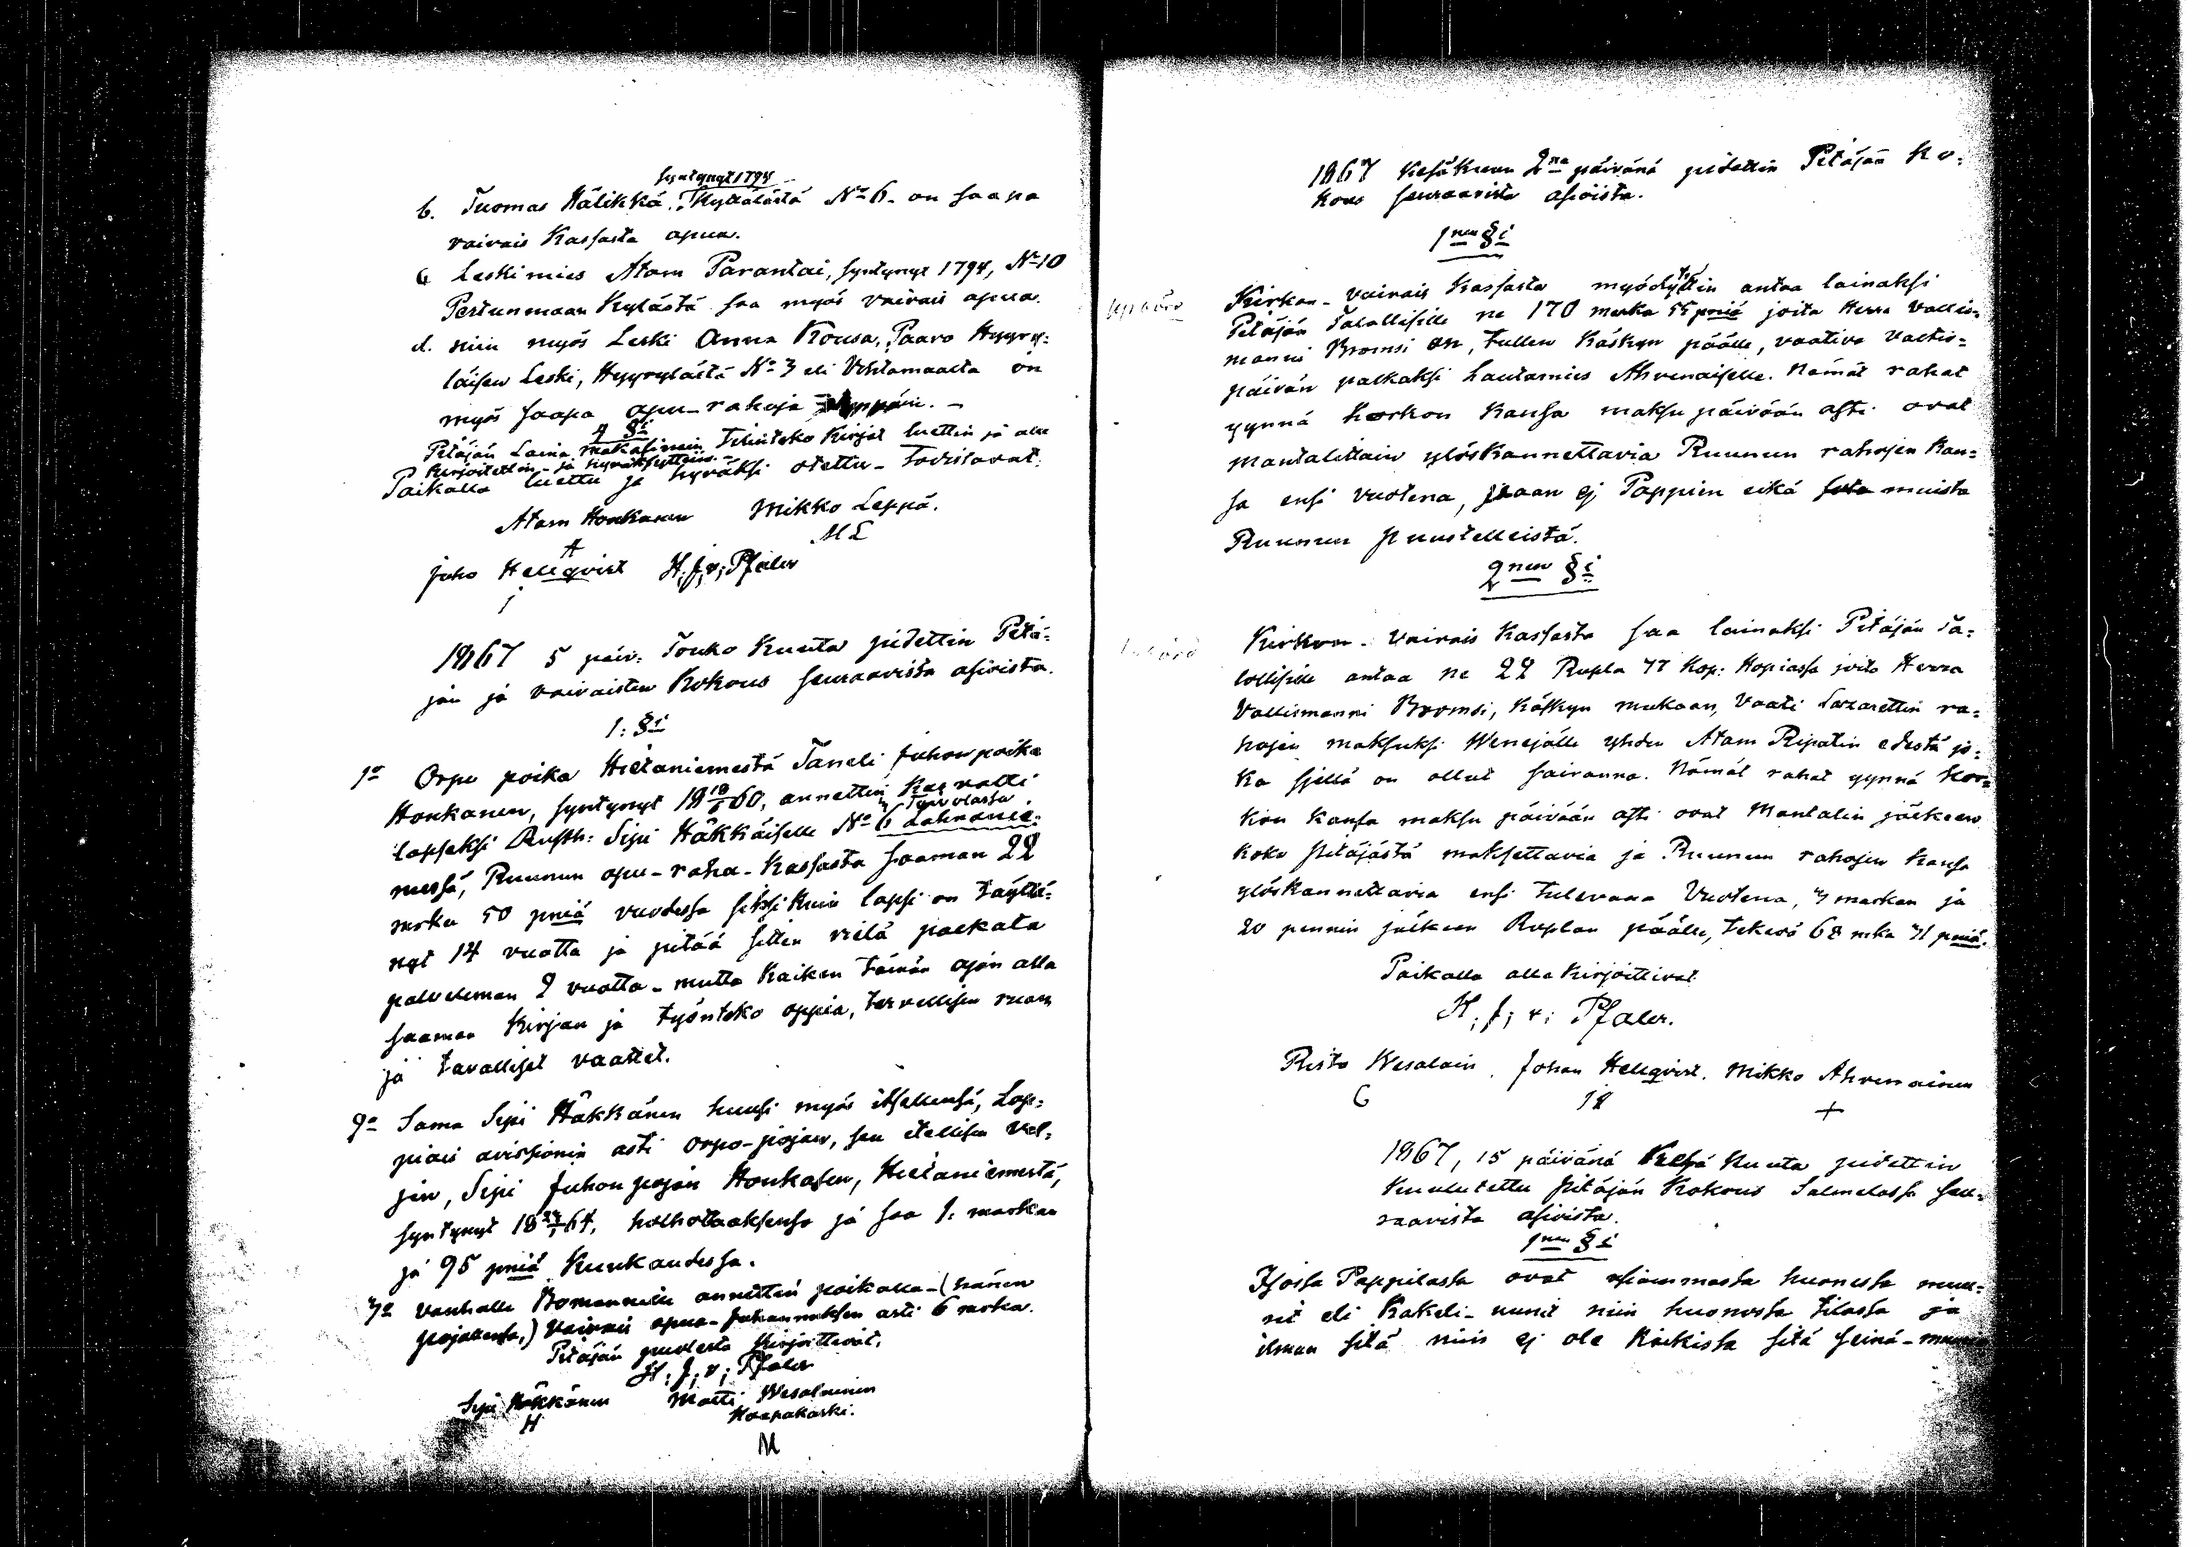 syntynyt 1794
b. Tuomas Hälikkä, Kytälästä No 6. on saapa
vaivais Kassasta apua.
c Leskimies Atam Parantai, syntynyt 1794, No 10
Pertunmaan Kylästä saa myös vaivais apua.
d. niin myös Leski Anna Kousa, Paavo Hyyry-
läisen Leski, Hyyrylästä No 3 eli Vihlamaalta on
myös saapa apu-rahoja
4 §i
Pitäjän Laina makasinin Tilinteko Kirjat luettin ja alle
Kirjoitettin - ja hyväksyttiin. -
Paikalla luettu ja hyväksi otettu - todistavat:
Atam Honkanen Mikko Leppä.
A ML
Juho Hellqvist H. J. v; Pfaler
j
1867 5 päiv: Touko Kuuta pidettin Pitä-
jän ja vaivaisten Kokous seuraavista asioista.
1: §i
1o Orpo poika Hietaniemestä Taneli Juhon poika
Honkanen, syntynyt 18 19/6 60, annettin Kasvatti
lapseksi Rusth: Sipi Häkkäiselle No 6 Lahnanie-
messä, Ruunun apu-raha-Kassasta saaman 22
marka 50 pniä vuodessa siksi Kuin lapsi on täyttä-
nyt 14 vuotta ja pitää sitten vielä paikata
palveleman 2 vuotta - mutta Kaiken tämän ajan alla
saaman Kirjan ja työnteko oppia, tervellisen ruan
ja tavalliset vaattet.
2o Sama Sipi Häkkänen huusi myös itsellensä, Lop-
piais avissionin asti orpo-pojan, sen etellisen Vel-
jen, Sipi Juhon pojan Honkasen, Hietaniemestä,
syntynyt 18 64, holhottaaksensa ja saa 1: markan
ja 95 pniä Kuukaudessa.
3o Vanhalle Bomannille annettin poikalla - (hänen
pojallensa,) Vaivais apua - Juhannuksen asti 6 marka.
Pitäjän puolesta Kirjoittivat.
H: J; v; Pfaler
Sipi Häkkänen Matti Wesalainen
H Haapakoski.
M
1867 Kesäkuun 2na päivänä pidettin Pitäjän Ko-
kous seuraavista asioista.
1nen §i
Kirkon - vaivais Kassasta myödyttin antaa lainaksi
Pitäjän Talollisille ne 170 marka 55 pniä joita Herra Vallis-
manni Bromsi on, tullen Käskyn päälle, vaativa Valtio-
päivän palkaksi Lautamies Ahvenaiselle. Nämät rahat
yynnä Korkon Kansa maksu päivään asti ovat
mantalittain ylöskannettavia Ruunun rahojen Kan-
sa ensi vuotena, vaan ej Pappien eikä muista
Ruunun puustelleistä.
2nen §i
Kirkon - Vaivais Kassasta saa lainaksi Pitäjän Ta-
lollisille antaa ne 22 Rupla 77 Kop: Hopiassa joita Herra
Vallismanni Bromsi, Käskyn mukaan, Vaati Lazarettin ra-
hojen maksuksi Wenejälle yhden Atam Ripatin edestä jo-
ka sjellä on ollut sairanna. Nämät rahat yynnä Kor-
kon Kansa maksu päivään asti ovat Mantalin jälkeen
Koko pitäjästä maksettavia ja Ruunun rahojen Kansa
ylöskannettavia ensi tulevana Vuotena, 3 markan ja
20 pennin jälkeen Ruplan päälle, tekevä 68 mka 31 pniä.
Paikalla alle Kirjoittivat
H, J; v; Pfaler.
Risto Wesalain. Johan Hellqvist. Mikko Ahvenainen
+
1867, 15 päivänä Kesä Kuuta pidettin
Kuulutettu pitäjän Kokous Salmelassa seu-
raavista asioista.
1nen §i
Isossa Pappilassa ovat usiammassa huonessa muu-
rit eli Kakeli-uunit niin huonossa tilassa ja
ilman sitä niin ej ole Kaikissa sitä seinä-